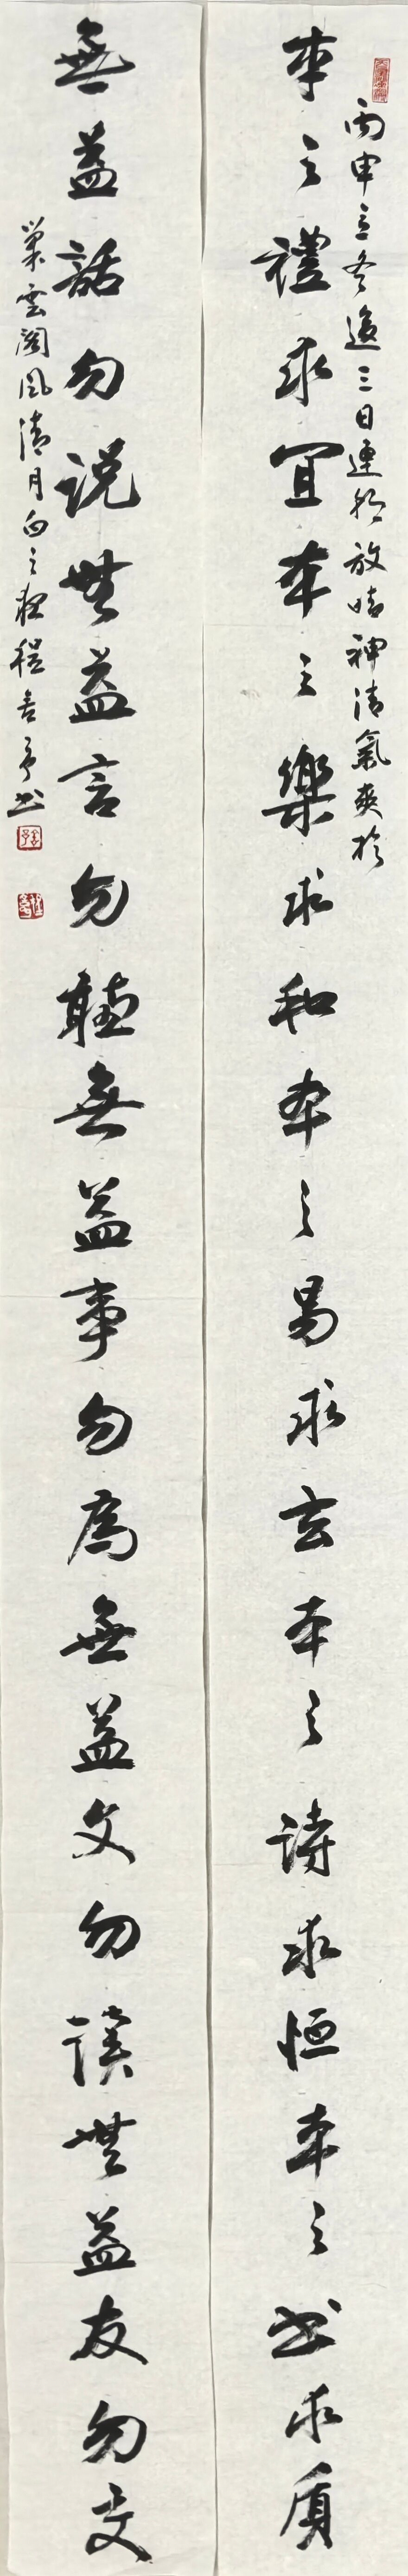 丙申立冬後三日連朝放晴神清氣爽於
本之禮求宜本之樂求和本之易求玄本之詩求恒本之書求質
無益話勿說無益言勿聽無益事勿為無益文勿讀無益友勿交
巢雲閣風清月白之夜程吉亭書